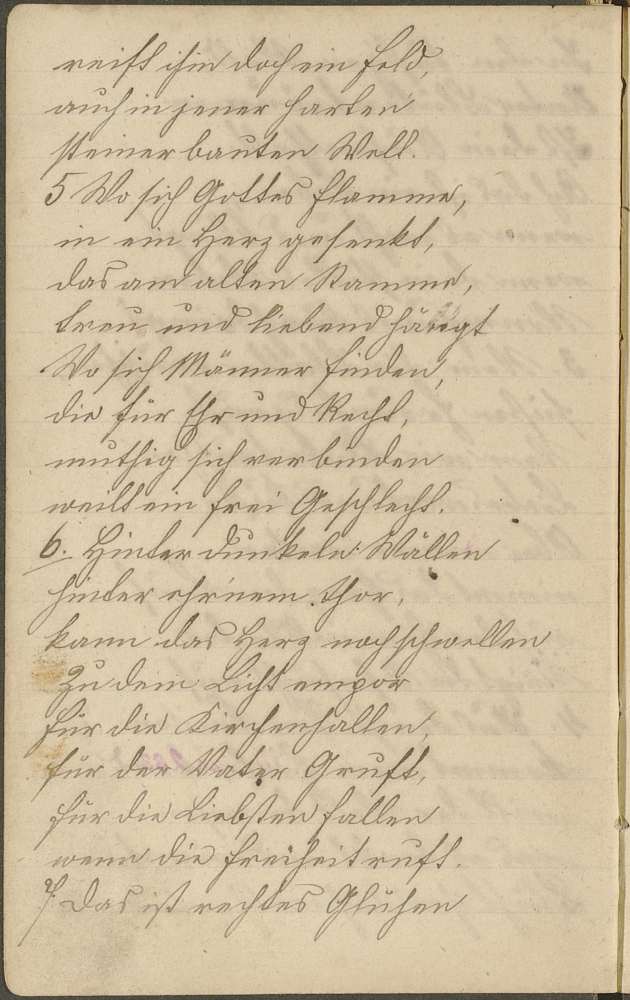 reift ihm doch ein Held,
auch in jener harten
steinerbauten Welt.
5 Wo sich Gottes Flamme,
in ein Herz gesenkt,
das am alten Stamme,
treu und liebend hängt
Wo sich Männer finden,
die für Ehr und Recht,
muthig sich verbinden
weilt ein frei Geschlecht.
6. Hinter dunkeln Wällen
hinter ehr'nem Thor,
kann das Herz noch schwellen
Zu dem Licht empor
Für die Kirchenhallen,
für der Väter Gruft,
für die Liebsten fallen
wenn die Freiheit ruft.
7. Das ist rechtes Glühen